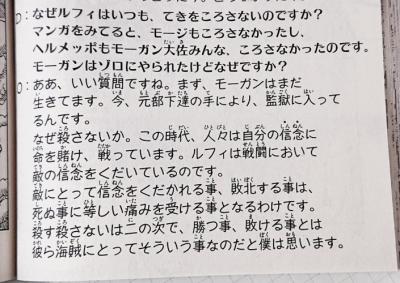 D：なぜルフィはいつも、てきをころさないのですか？
マンガをみてると、モージもころさなかったし、
ヘルメッポもモーガン大佐みんな、ころさなかったのです。
モーガンはゾロにやられたけどなぜですか？
O：ああ、いい質問ですね。まず、モーガンはまだ
生きてます。今、元部下達の手により、監獄に入って
るんです。
なぜ殺さないか。この時代、人々は自分の信念に
命を賭け、戦っています。ルフィは戦闘において
敵の信念をくだいているのです。
敵にとって信念をくだかれる事、敗北する事は、
死ぬ事に等しい痛みを受ける事となるわけです。
殺す殺さないは二の次で、勝つ事、敗ける事とは
彼ら海賊にとってそういう事なのだと僕は思います。